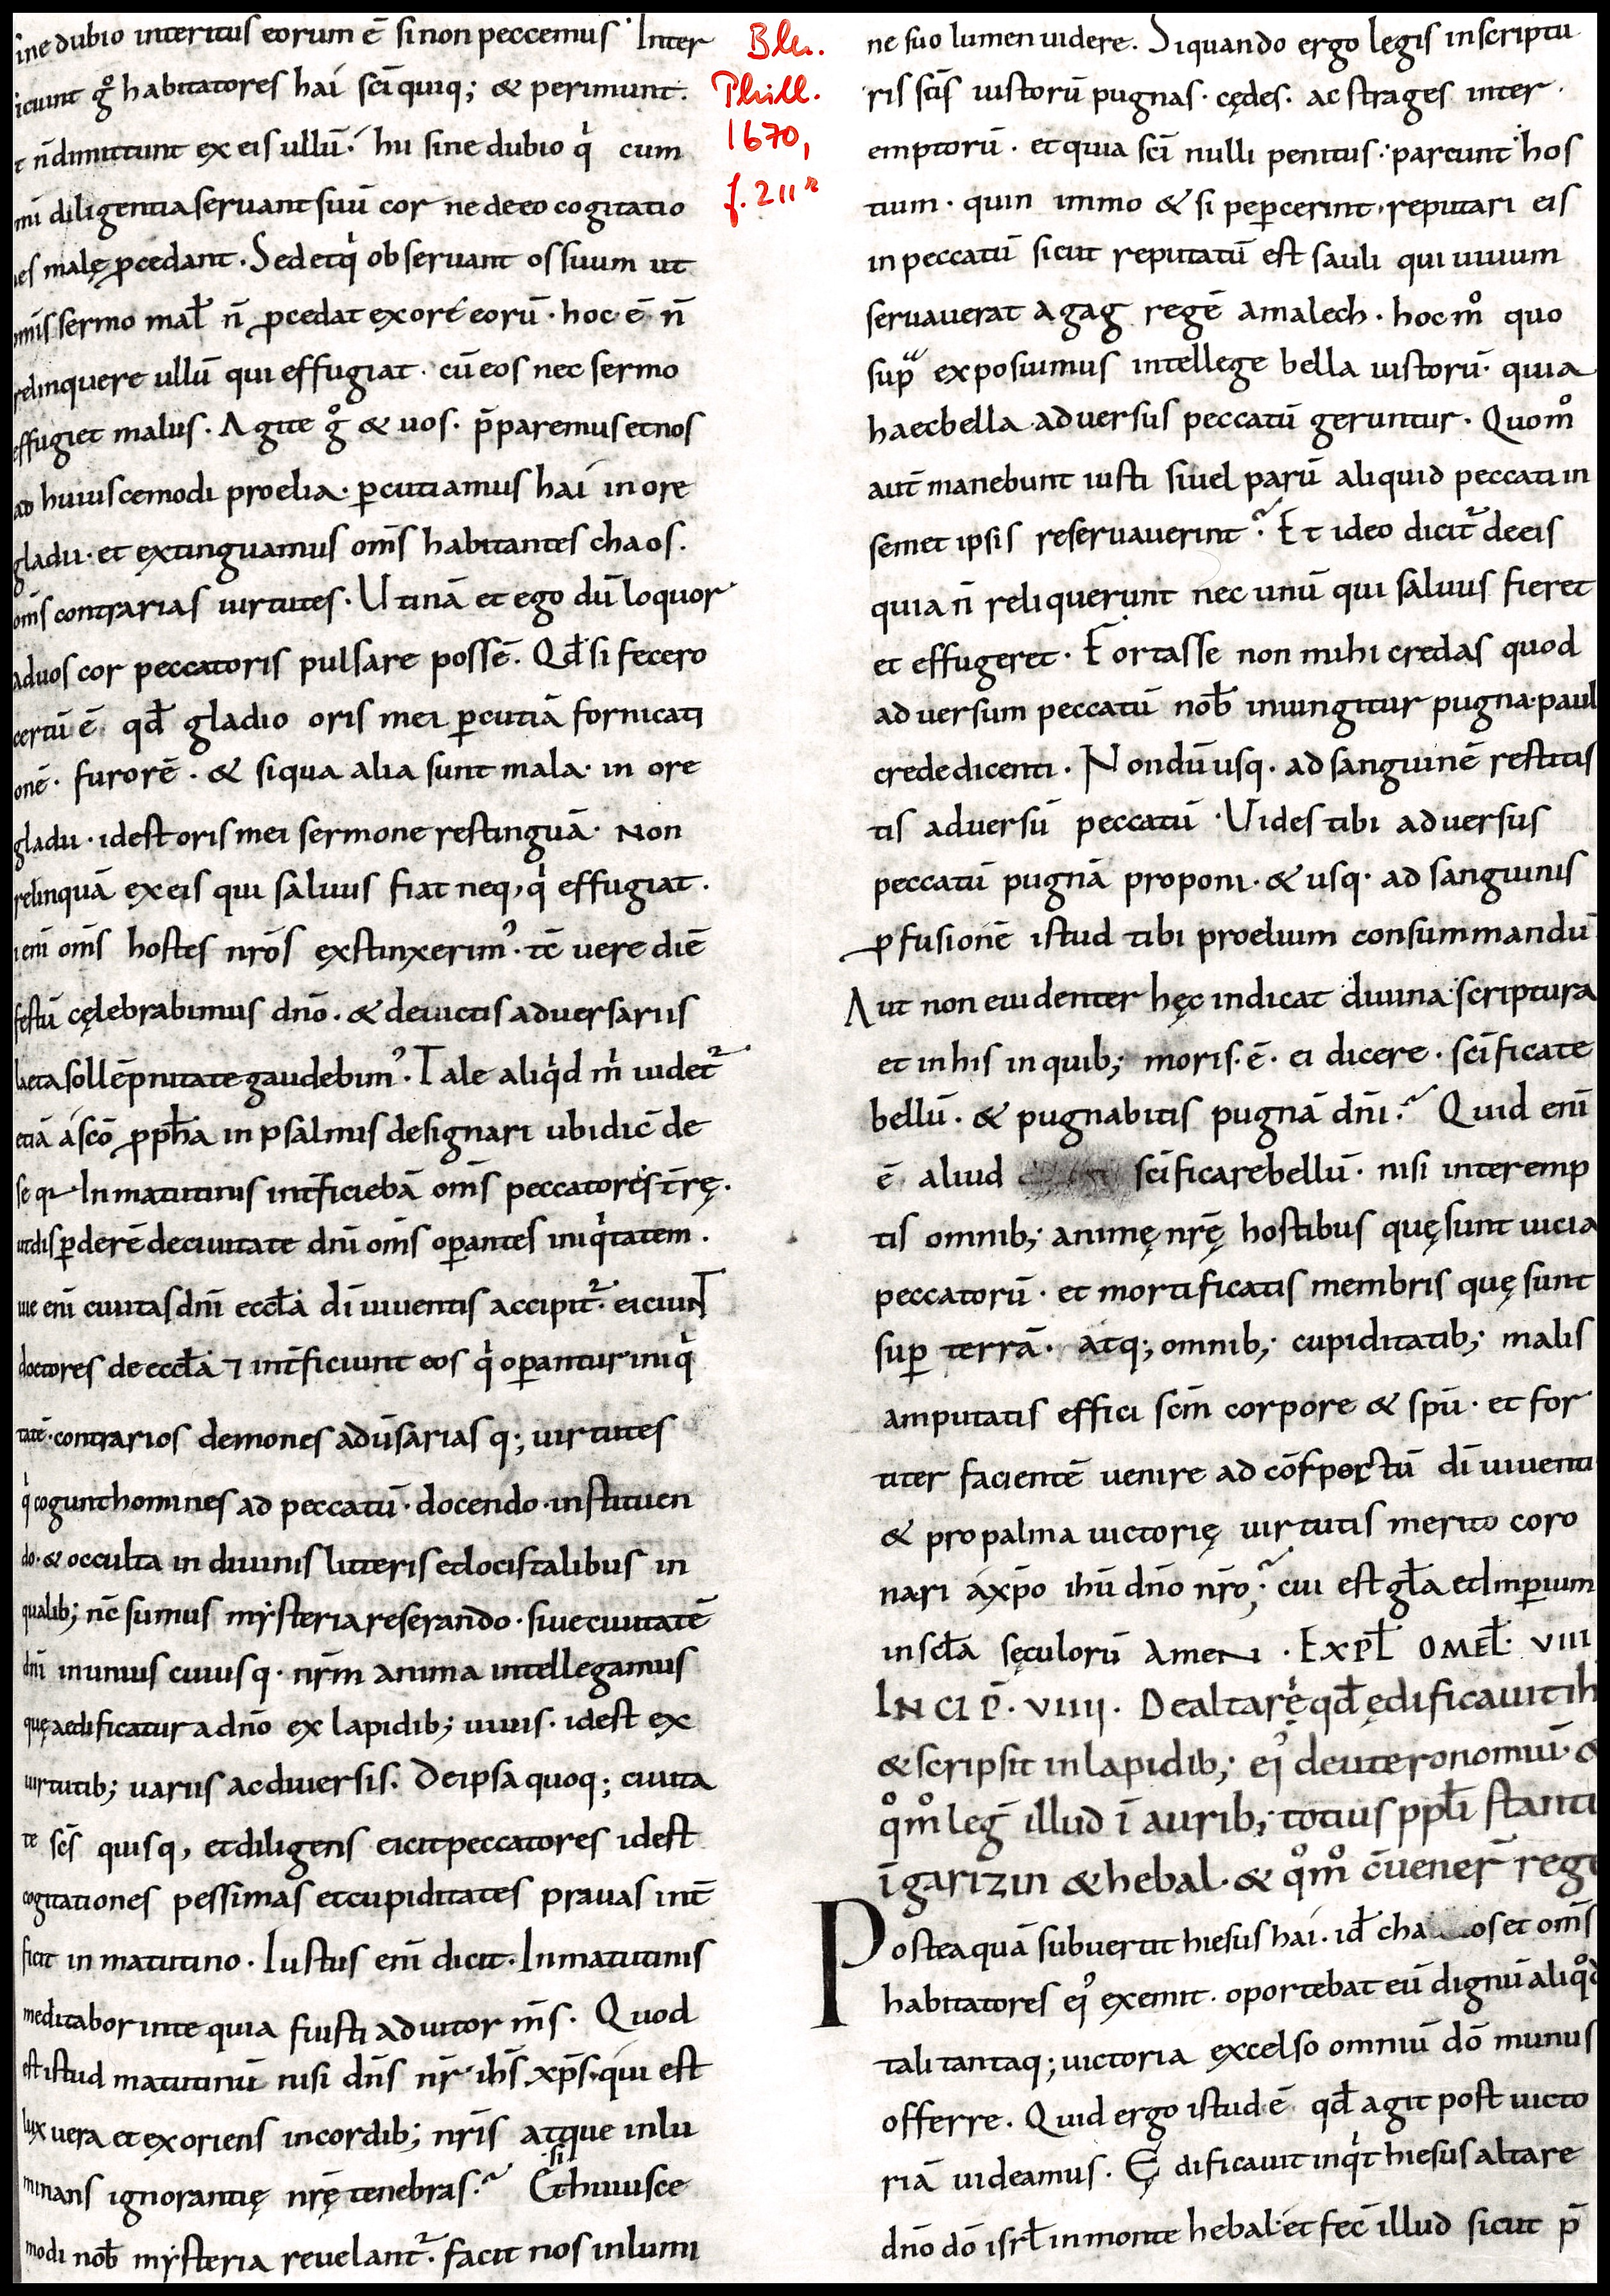 ine dubio interitus eorum ē si non peccemus · Inter
iciunt gͦ habitatores hai sc̄i quiq; & perimunt.
t n̄ dimittunt ex eis ullū · hii sine dubio qͥ cum
mi diligentia servant suū cor ne de eo cogitatio
es malę ꝓcedant. Sed et qͥ observant os suum ut
omīs sermo mal̄ n̄ ꝓcedat ex ore eorū · hoc ē · n̄
relinquere ullū qui effugiat · cū eos nec sermo
effugiet malus. Agite gͦ & uos. p̄paremus et nos
ad huiuscemodi proelia · ꝑcutiamus hai in ore
gladii · et extinguamus om̄s habitantes chaos.
om̄s contrarias uirtutes. Utinā et ego dū loquor
ad uos cor peccatoris pulsare possē. Qd̄ si fecero
certū ē · qd̄ gladio oris mei ꝑcutiā fornicati
onē · furorē · & siqua alia sunt mala · in ore
gladii · id est oris mei sermone restinguā · Non
relinquā ex eis qui saluus fiat neq, qͥ effugiat.
i eni om̄s hostes nr̄os extinxerimꝰ · tc̄ uere diē
festū cęlebrabimus dn̄o. & deuictis aduersariis
laeta sollēpnitate gaudebimꝰ. Tale aliqͥd mͥ uidet᷑
etiā a sc̄o ꝓph̄a in psalmis designari ubi dic̄ de
se qr In matutinis int̄ficiebā om̄s peccatores t̄rę.
ut disꝑderē de ciuitate dn̄i om̄s oꝑantes iniqͥtatem.
iue eni ciuitas dn̄i eccl̄a dī uiuentis accipit᷑. eiciunt
doctores de eccl̄a ⁊ int̄ficiunt eos qͥ oꝑantur iniqͥ
tatē · contrarios demones adūsarias q; uirtutes
qͥ cogunt homines ad peccatū · docendo · instituen
do · & occulta in diuinis litteris et locis talibus in
qualib; nc̄ sumus mysteria reserando · siue ciuitatē
dn̄i in unius cuiusq · nr̄m anima intellegamus
quę aedificatur a dn̄o ex lapidib; uiuis · id est ex
uirtutib; uariis ac diuersis. De ipsa quoq; ciuita
te sc̄s quisq, et diligens eicit peccatores id est
cogitationes pessimas et cupiditates prauas int̄
ficit in matutino. Iustus eni dicit. In matutinis
meditabor in te quia fuisti adiutor m̄s. Quod
est istud matutinū nisi dn̄s nr̄ ih̄s xp̄s · qui est
lux uera et exoriens in cordib; nr̄is atque inlu
minans ignorantię nr̄ę tenebras. Et si huiusce
modi nob̄ mysteria reuelant᷑. facit nos in lumi
Bln.
Phill.
1670,
f. 211r
ne suo lumen uidere. Siquando ergo legis in scriptu
ris sc̄is iustorū pugnas · cędes · ac strages inter
emptorū · et quia sc̄i nulli penitus · parcunt hos
tium · quin immo & si pepercerint · reputari eis
in peccatū sicut reputatū est sauli qui uiuum
seruauerat agag regē amalech · hoc mͦ quo
supͣ exposuimus intellege bella iustorū · quia
haec bella aduersus peccatū geruntur · Quomͦ
aut̄ manebunt iusti si uel parū aliquid peccati in
semet ipsis reseruauerint? Et ideo dicit᷑ de eis
quia n̄ reliquerunt nec unū qui saluus fieret
et effugeret · Fortasse non mihi credas quod
aduersum peccatū nob̄ iniungitur pugna · paul
crede dicenti. Nondū usq · ad sanguinē restitis
tis aduersū peccatū · Uides tibi aduersus
peccatū pugnā proponi · & usq · ad sanguinis
ꝓfusionē istud tibi proelium consummandū
Aut non euidenter hęc indicat diuina scriptura
et in his in quib; moris · ē · ei dicere · sc̄ificate
bellū · & pugnabitis pugnā dn̄i? Quid eni
ē aliud sc̄ificare bellū · nisi interemp
tis omnib; animę nr̄ę hostibus quę sunt uicia
peccatorū · et mortificatis membris quę sunt
suꝑ terrā · atq; omnib; cupiditatib; malis
amputatis effici sc̄m corpore & sp̄u · et for
titer facientē uenire ad cōspectū dī uiuenti
& pro palma uictorię uirtutis merito coro
nari a xp̄o ih̄u dn̄o nr̄o; cui est gl̄a et Inꝑium
in scl̄a sęculorū Amen · Expl̄ omel̄ · viii
Incip̄ · viiii · De altare qd̄ ędificauit ih
& scripsit in lapidib; eiꝰ deuteronomiū · &
qͦmͦ leg̅ illud ī aurib; totius ppl̄i stanti
ī garizin & hebal · & qͦmͦ c̄uener̄ rege
Posteaquā subuertit hiesus hai · id̄ cha os et om̄s
habitatores eiꝰ exemit · oportebat eū dignū aliqͦd
tali tantaq; uictoria excelso omniū dō munus
offerre. Quid ergo istud ē qd̄ agit post uicto
riā uideamus. Ędificauit inqͥt hiesus altare
dn̄o dō isrl̄ in monte hebal · et fec̄ illud sicut p̄